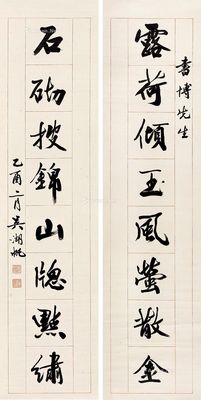 書博先生
露荷傾玉風螢散金
石砌搜錦山牕點繡
乙酉二月吳湖帆